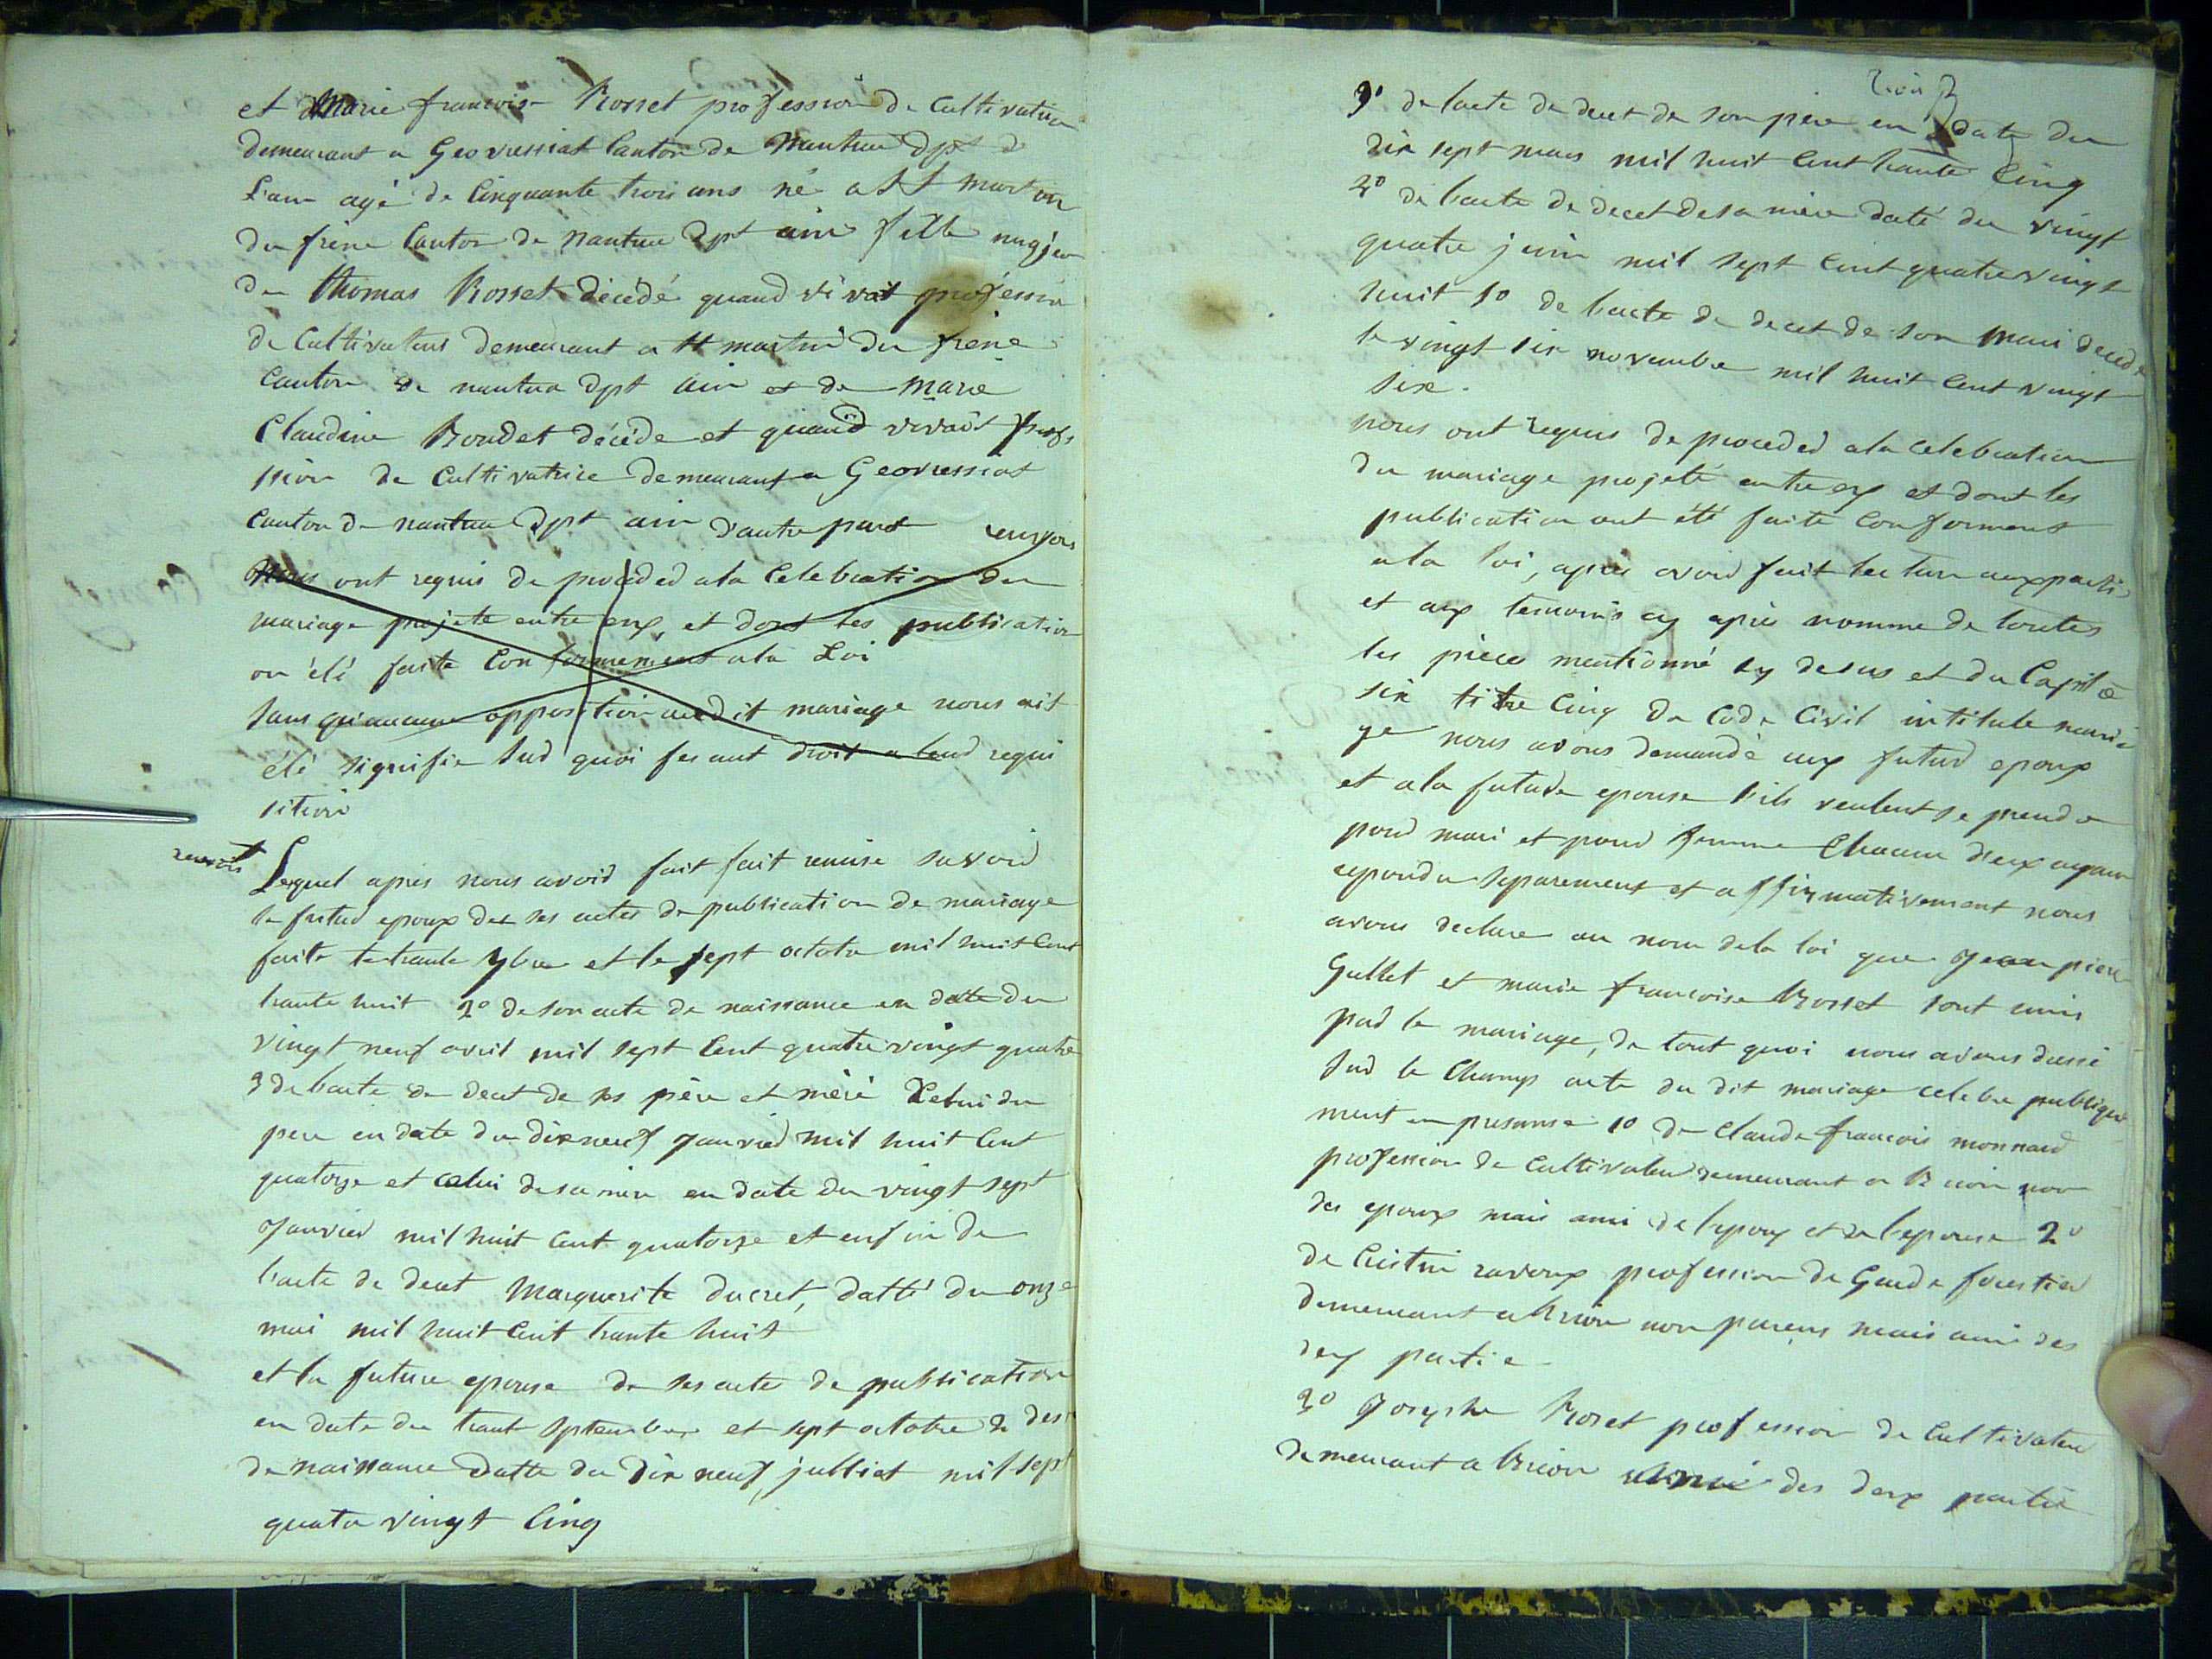 et Marie francoise Rosset profession de Cultivatrice
demeurant a Geovressiat Canton de Nantua dpt de
L'ain agé de Cinquante trois ans né a St martin
du frêne Canton de nantua dpt ain fille majeur
de thomas Rosset décédé quand vivait profession
de Cultivateur demeurant a St martin du frène
Canton de nantua dpt ain et de Marie
Claudine Boudet décéde et quand vivait profe
ssion de Cultivatrice demeurant a Geovressiat
Canton de nantua dpt ain d'autre part renvois
Nous ont requis de proceded a la Celebration du
mariage projete entre eux, et dont les publication
on été faite Conformement a la Loi
sans qu'aucune opposition au dit mariage nous ait
été signifie sud quoi fesant droit a leud requi
sition
renvois Lequel après nous avoid fait fait remise savoid
le futud epoux de ses actes de publication de mariage
faite le trante 7bre et le sept octobre mil huit Cent
trante huit 2º de son acte de naissance en date du
vingt neuf avril mil sept Cent quatre vingt quatre
3 de l'acte de decet de ses père et mère Celui du
pere en date du dix neuf janvied mil huit Cent
quatorze et celui de sa mère en date du vingt sept
janvied mil huit Cent quatorze et enfin de
l'acte de decet Marguerite ducret, datté du onze
mai mil huit Cent trante huit
et la future epouse de ses acte de publication
en date du trant septembre et sept octobre 2 de
de naissance datte du dix neuf julliet mil sept
quatre vingt Cinq
trois
3º de l'acte de decet de son père en date du
dix sept mars mil huit Cent trante Cinq
4º de l'acte de decet de sa mère daté du vingt
quatre juin mil sept Cent quatre vingt
huit 5º de l'acte de decet de son mari decede
le vingt six novembre mil huit Cent vingt
six.
nous ont requis de proceded a la celebration
du mariage projeté entre eux et dont les
publication ont été faite Conforment
a la loi, après avoid fait lecture aux parti
et aux temoins cy après nomme de toutes
les pièce mentionné cy desus et du Capitre
six titre Cinq du Code Civil intitule maria
ge nous avons demandé aux futud epoux
et a la futude epouse s'ils veulent se prendre
poud mari et poud femme Chacun d'eux ayant
repondu separement et affirmativement nous
avons declare au nom de la loi que jean piere
Gullet et marie francoise Rosset sont unis
pad le mariage, de tout quoi nous avons dressé
sud le Champ acte du dit mariage celebre publique
ment en presense 1º de Claude francois monnard
profession de Cultivateur demeurant a Brion non
des epoux mais ami de l'epoux et de l'epouse 2º
de ravoux profession de Garde forestier
demeurant a Brion non parens mais ami des
deux partie
3º Josephe Roset profession de Cultivateur
demeurant a Brion des deux partie